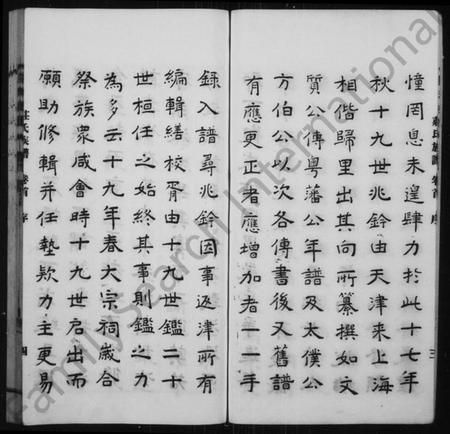 憧罔息未遑肆力於此十七年
秋十九世兆鈐由天津來上海
相偕歸里出其向所纂撰如文
質公傳粵藩公年譜及太僕公
方伯公以次各傳書後又舊譜
有應更正者應增加者一一手
錄入譜尋兆鈐因事返津所有
編輯繕校胥由十九世鑑二十
世桓任之始終其事則鑑之力
為多云十九年春大宗祠歲合
祭族眾咸會時十九世启出而
願助修輯并任墊欵力主更易
莊氏族譜 卷首 序 三
莊氏族譜 卷首 序 四
FamilySearch International